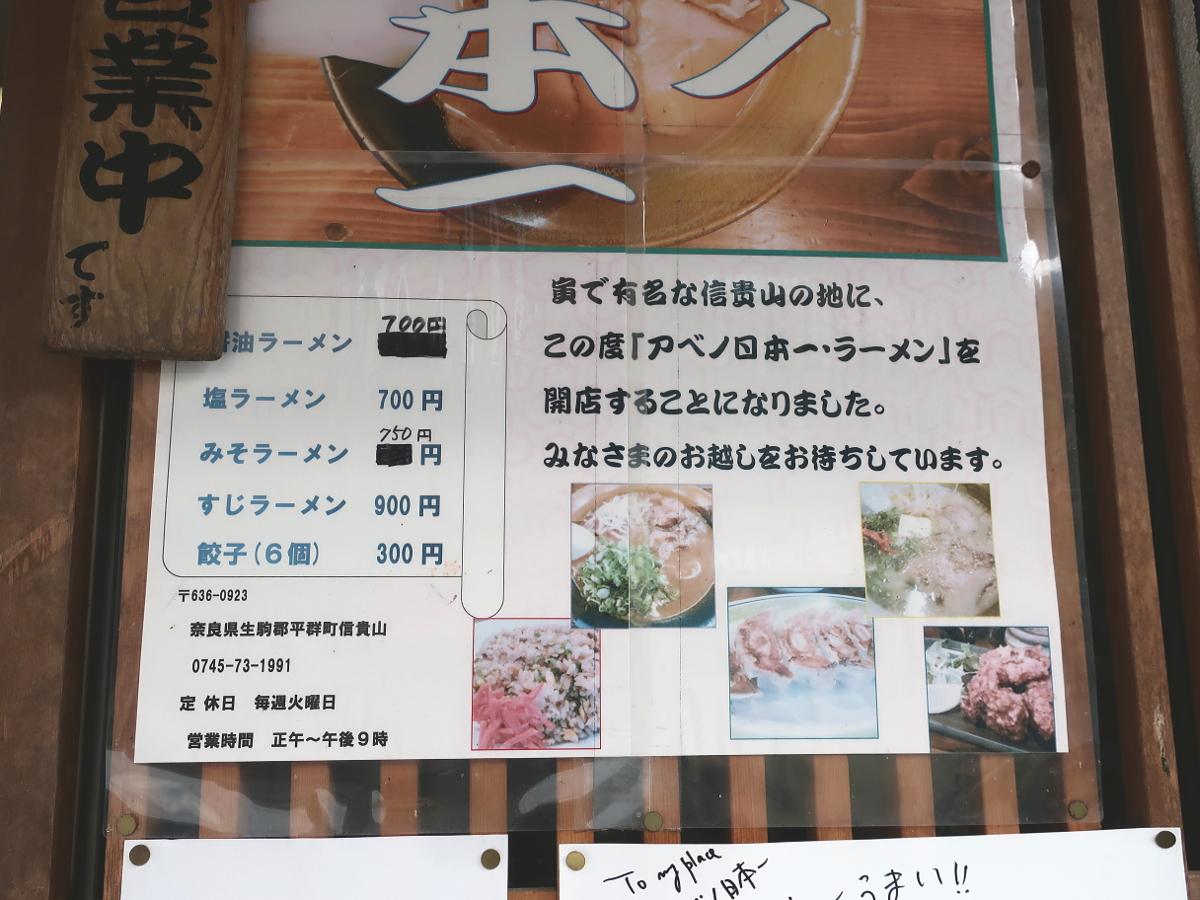 営業中
です
本ノ
一
寅で有名な信貴山の地に、
この度「アベノ日本一・ラーメン」を
開店することになりました。
みなさまのお越しをお待ちしています。
醤油ラーメン 700円
塩ラーメン 700円
みそラーメン 750円 円
すじラーメン 900円
餃子(6個) 300円
〒636-0923
奈良県生駒郡平群町信貴山
0745-73-1991
定休日 毎週火曜日
営業時間 正午〜午後9時
To my place
ノ日本一
うまい!!